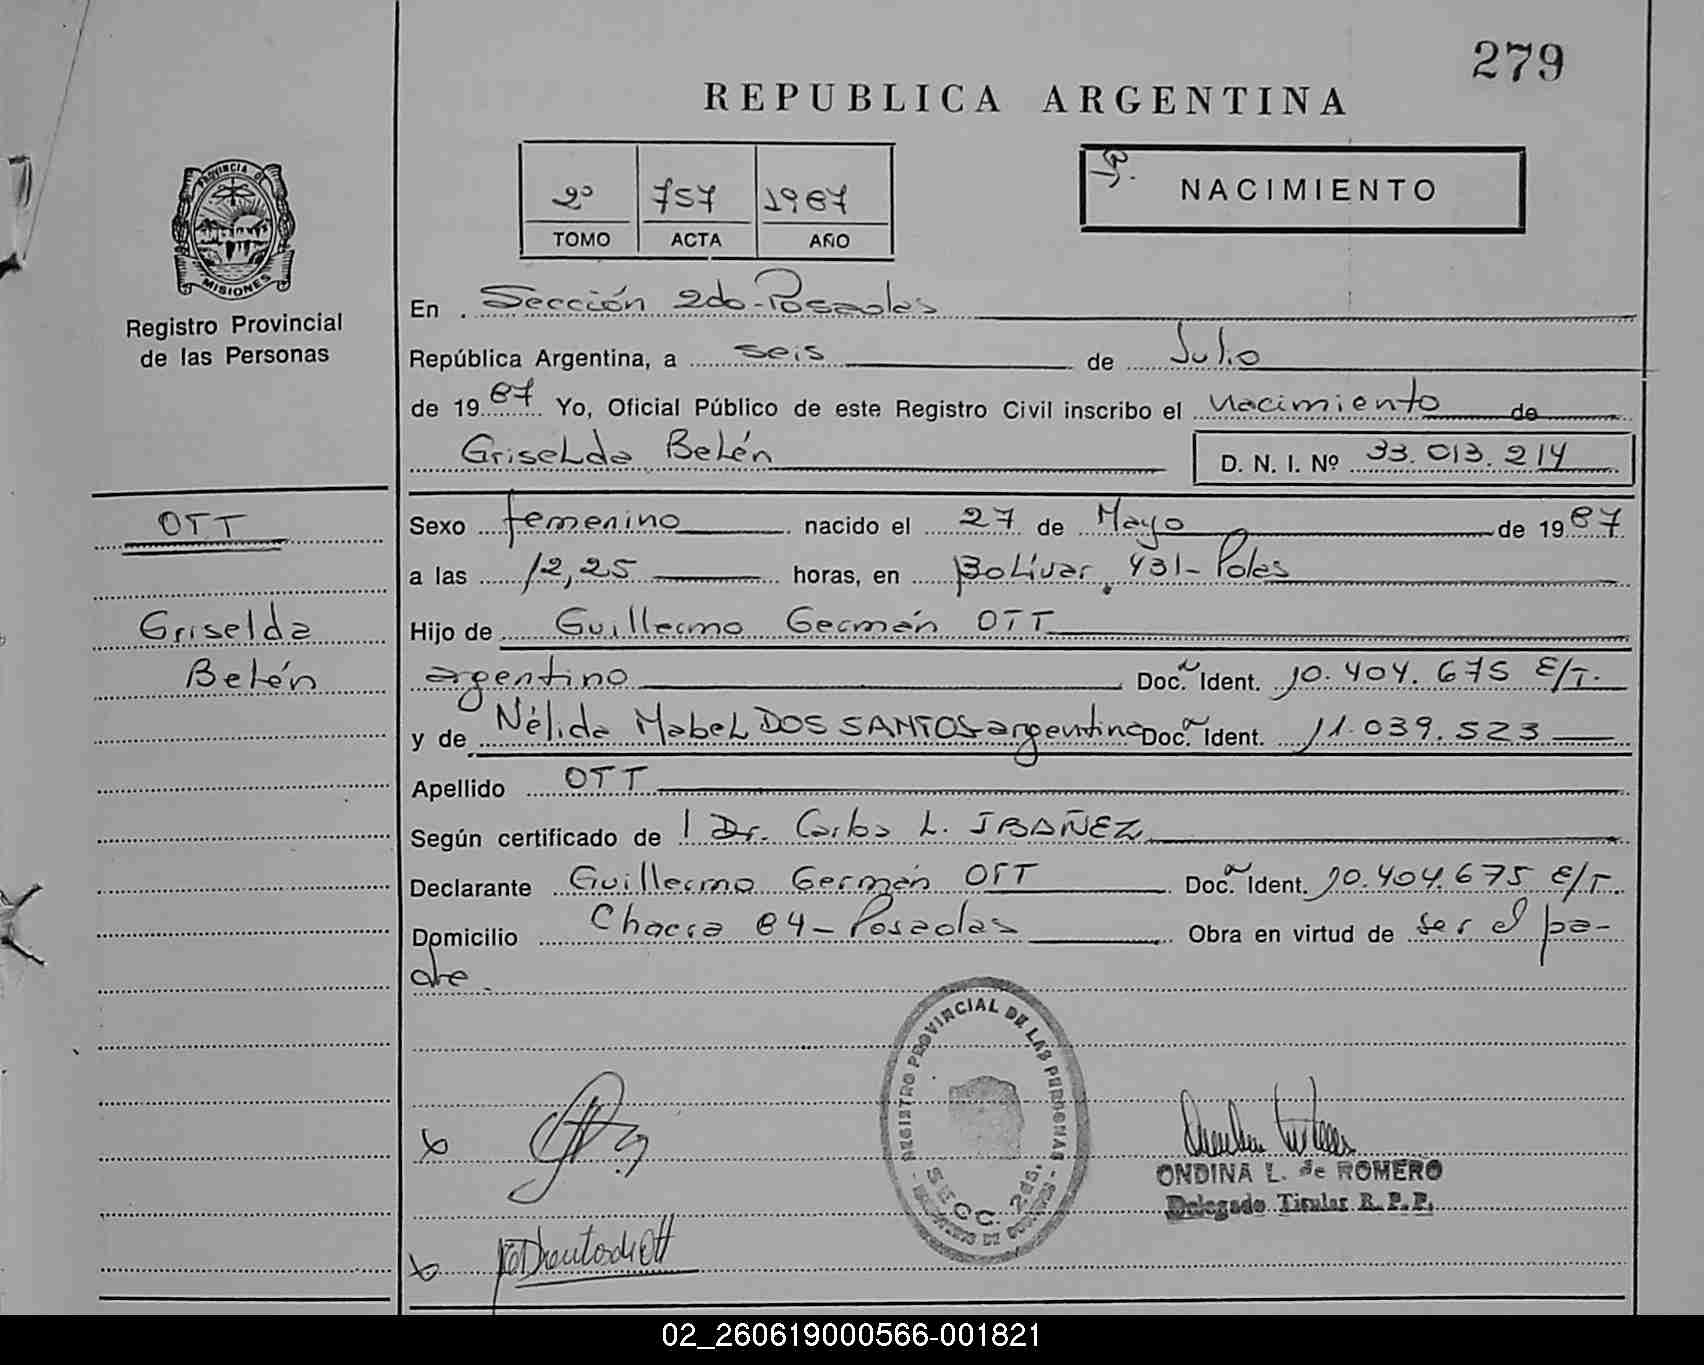 279
REPUBLICA ARGENTINA
2º 757 1987
TOMO ACTA AÑO
NACIMIENTO
PROVINCIA DE
MISIONES
Registro Provincial
de las Personas
En Sección 2da-Posadas
República Argentina, a seis de Julio
de 1987 Yo, Oficial Público de este Registro Civil inscribo el Nacimiento de
Griselda Belén
D. N. I. Nº 33.013.214
OTT
Griselda
Belén
Sexo femenino nacido el 27 de Mayo de 1987
a las 12,25 horas, en Bolívar, 431- Pdas
Hijo de Guillermo Germán OTT
argentino Doc. Ident. 10.404.675 E/T.
y de Nélida Mabel DOS SANTOS-argentina Doc. Ident. 11.039.523
Apellido OTT
Según certificado de Dr. Carlos L. IBAÑEZ
Declarante Guillermo Germán OTT Doc. Ident. 10.404.675 E/T.
Domicilio Chacra 84-Posadas Obra en virtud de ser el pa-
dre.
REGISTRO PROVINCIAL DE LAS PERSONAS
SECC. 2da.
ONDINA L. de ROMERO
Delegado Titular R. P. P.
02_260619000566-001821